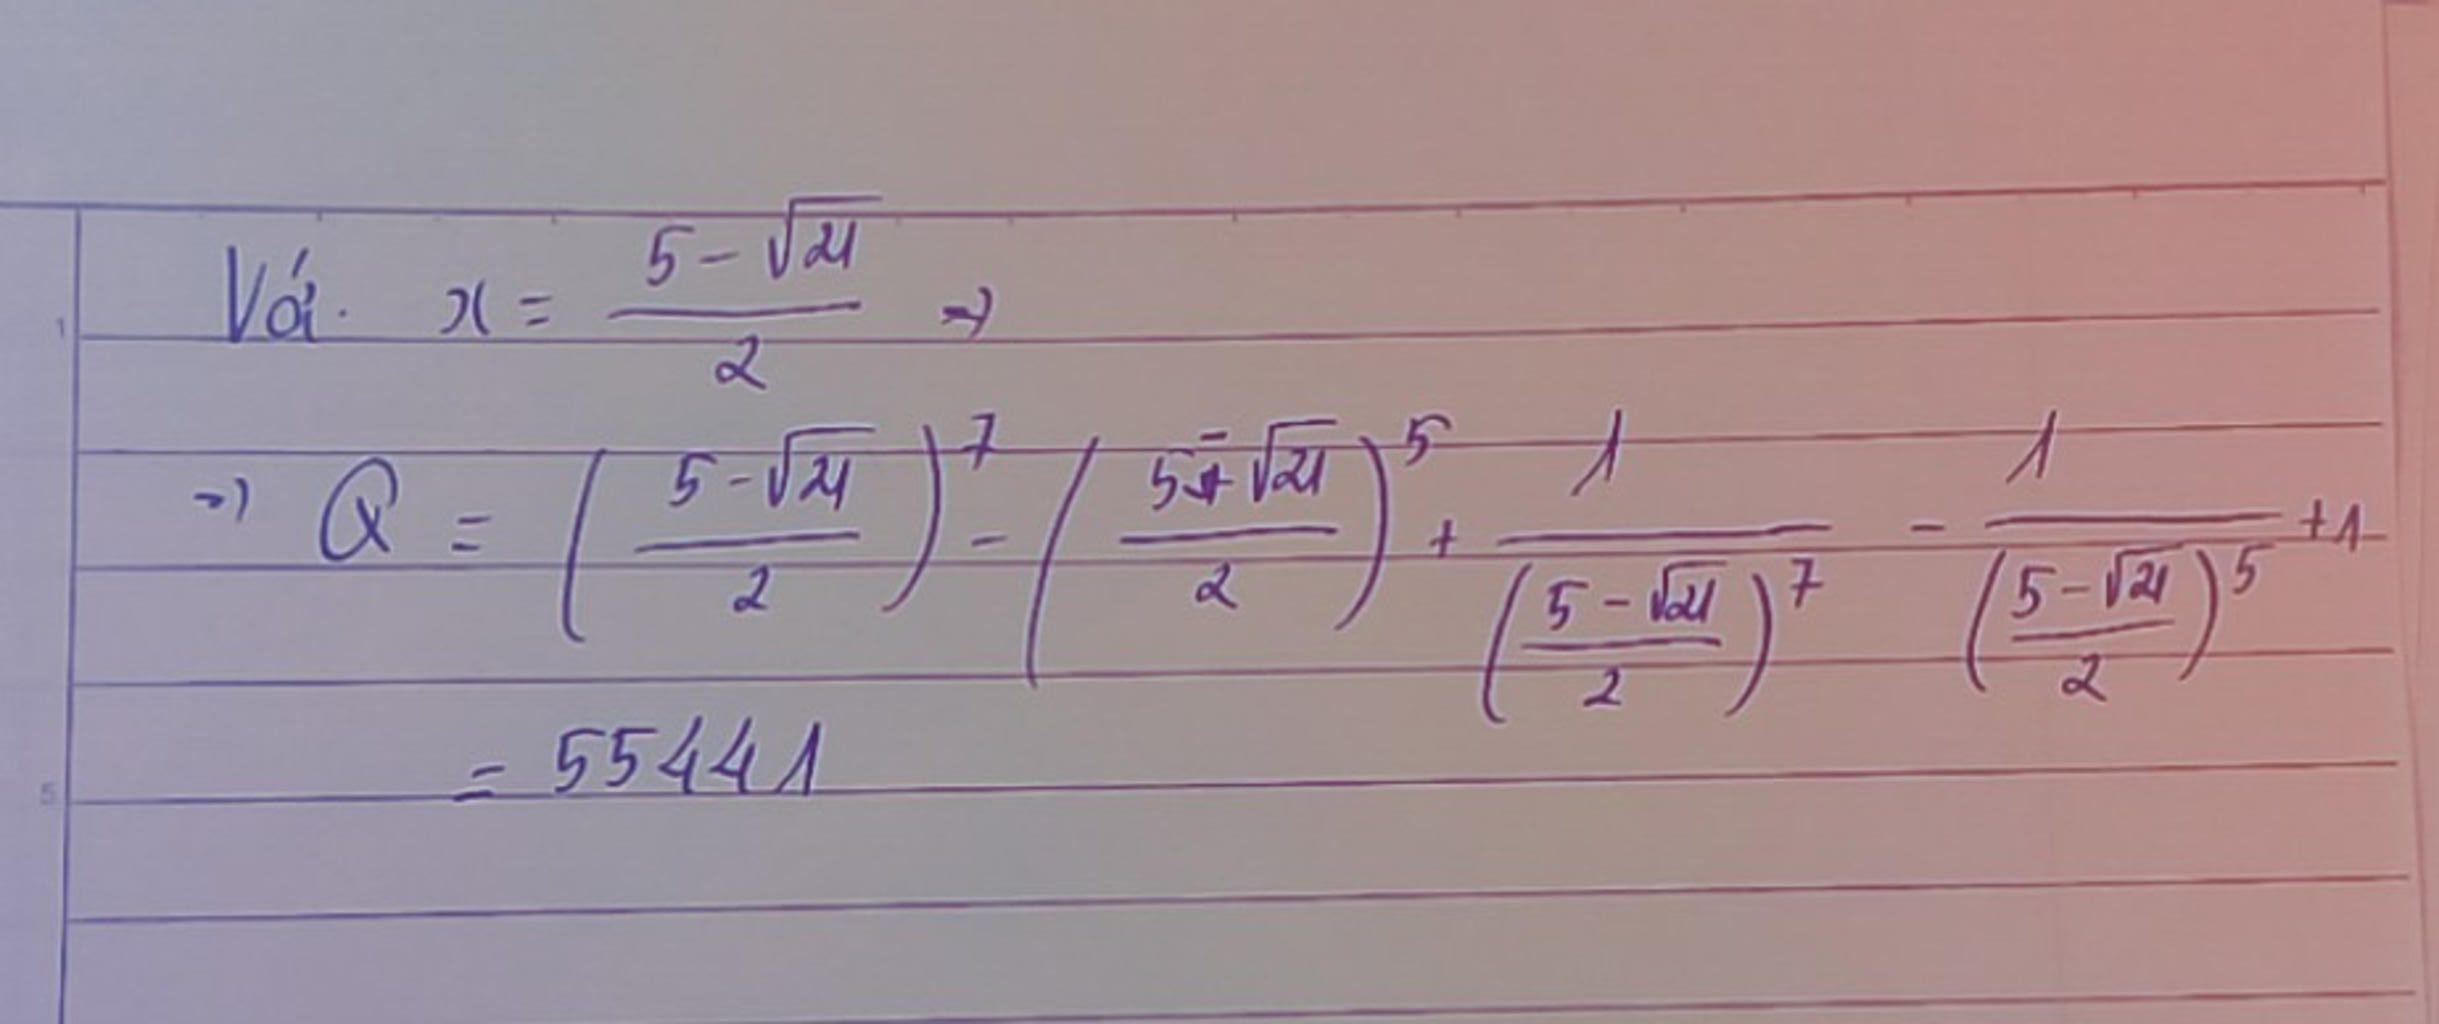 Với x = \frac{5 - \sqrt{21}}{2} =>
=> Q = \left(\frac{5 - \sqrt{21}}{2}\right)^7 - \left(\frac{5 - \sqrt{21}}{2}\right)^5 + \frac{1}{\left(\frac{5 - \sqrt{21}}{2}\right)^7} - \frac{1}{\left(\frac{5 - \sqrt{21}}{2}\right)^5} + 1
= 55441
1
5